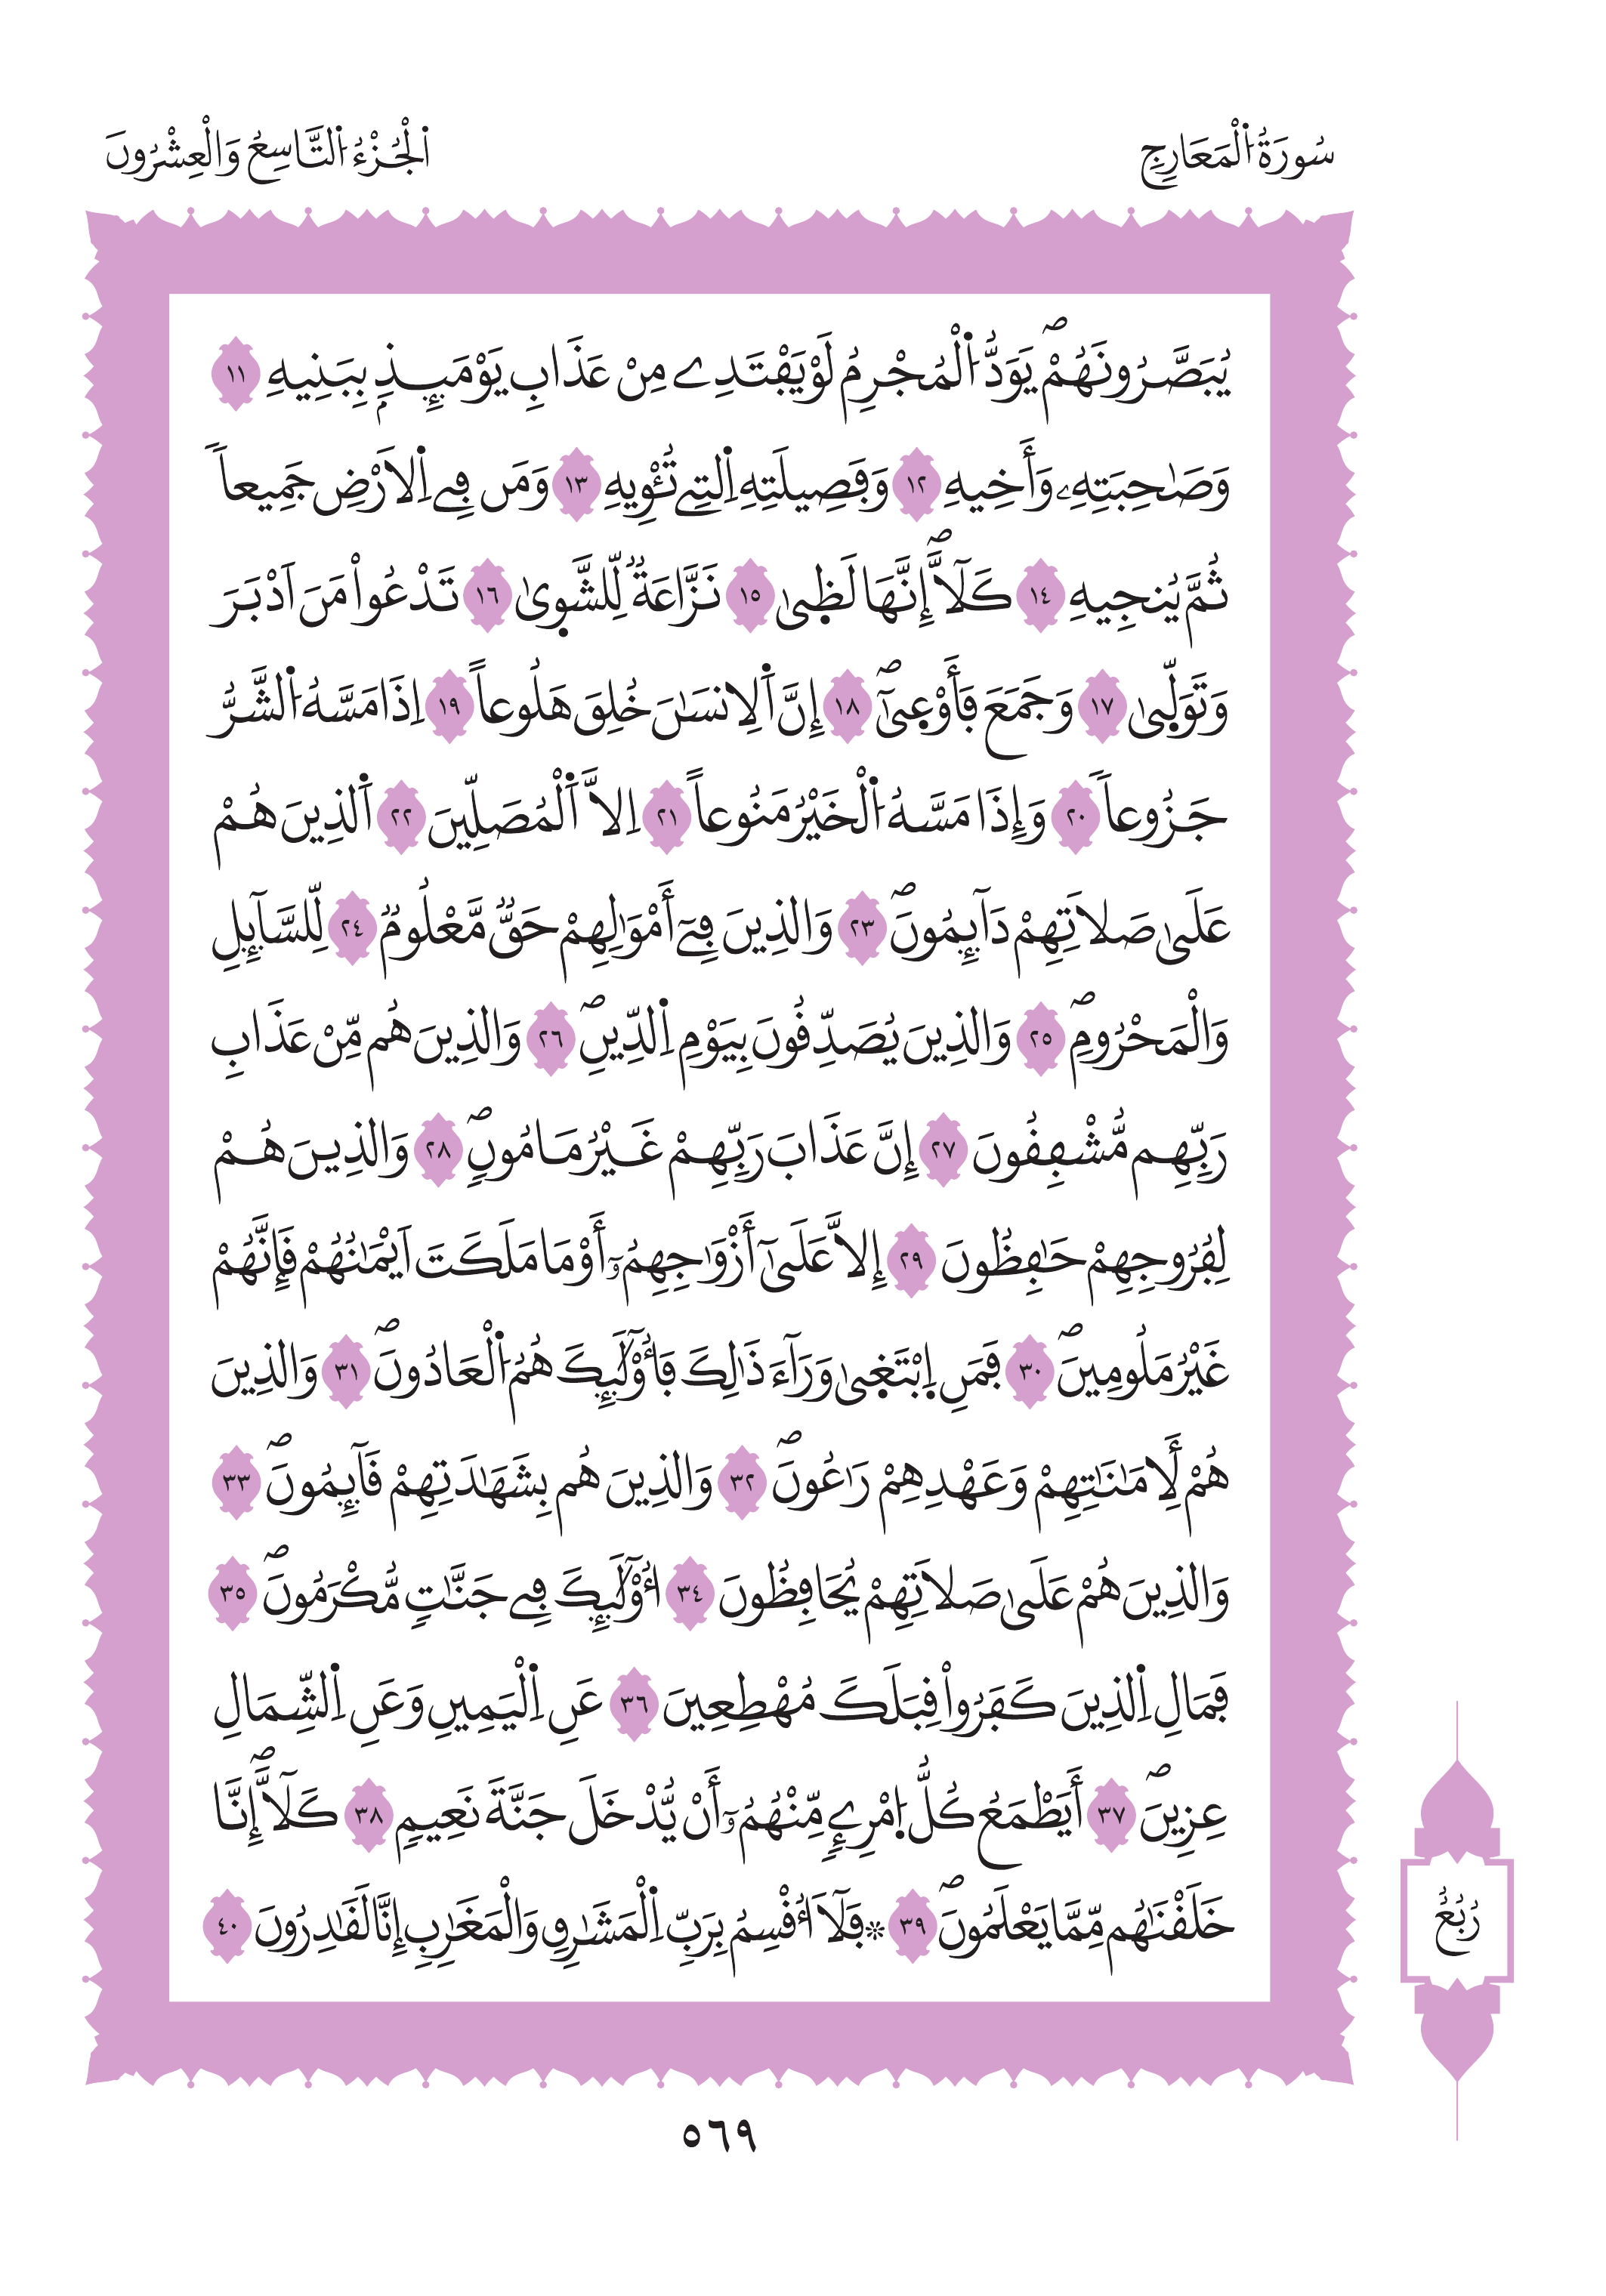 سُورَةُ اُ۬لْمَعَارِجِ
اَ۬لْجُزْءُ اُ۬لتَّاسِعُ وَالْعِشْرُونَ
يُبَصَّرُونَهُمْۖ يَوَدُّ اُ۬لْمُجْرِمُ لَوْ يَفْتَدِے مِنْ عَذَابِ يَوْمَئِذِۢ بِبَنِيهِ ١١
وَصَٰحِبَتِهِۦ وَأَخِيهِ ١٢ وَفَصِيلَتِهِ اِ۬لتِے تُـْٔوِيهِ ١٣ وَمَن فِے اِ۬لَارْضِ جَمِيعاٗ
ثُمَّ يُنجِيهِ ١٤ كَلَّآۖ إِنَّهَا لَظ۪يٰ ١٥ نَزَّاعَةٞ لِّلشَّو۪يٰ ١٦ تَدْعُواْ مَنَ اَدْبَرَ
وَتَوَلّ۪يٰ ١٧ وَجَمَعَ فَأَوْع۪يٰٓۖ ١٨ إِنَّ اَ۬لِانسَٰنَ خُلِقَ هَلُوعاً ١٩ اِذَا مَسَّهُ اُ۬لشَّرُّ
جَزُوعاٗ ٢٠ وَإِذَا مَسَّهُ اُ۬لْخَيْرُ مَنُوعاً ٢١ اِلَّا اَ۬لْمُصَلِّينَ ٢٢ اَ۬لذِينَ هُمْ
عَلَيٰ صَلَاتِهِمْ دَآئِمُونَۖ ٢٣ وَالذِينَ فِےٓ أَمْوَٰلِهِمْ حَقّٞ مَّعْلُومٞ ٢٤ لِّلسَّآئِلِ
وَالْمَحْرُومِۖ ٢٥ وَالذِينَ يُصَدِّقُونَ بِيَوْمِ اِ۬لدِّينِۖ ٢٦ وَالذِينَ هُم مِّنْ عَذَابِ
رَبِّهِم مُّشْفِقُونَ ٢٧ إِنَّ عَذَابَ رَبِّهِمْ غَيْرُ مَامُونٖۖ ٢٨ وَالذِينَ هُمْ
لِفُرُوجِهِمْ حَٰفِظُونَ ٢٩ إِلَّا عَلَيٰٓ أَزْوَٰجِهِمُۥٓ أَوْ مَا مَلَكَتَ اَيْمَٰنُهُمْ فَإِنَّهُمْ
غَيْرُ مَلُومِينَۖ ٣٠ فَمَنِ اِ۪بْتَغ۪يٰ وَرَآءَ ذَٰلِكَ فَأُوْلَٰٓئِكَ هُمُ اُ۬لْعَادُونَۖ ٣١ وَالذِينَ
هُمْ لِأَمَٰنَٰتِهِمْ وَعَهْدِهِمْ رَٰعُونَۖ ٣٢ وَالذِينَ هُم بِشَهَٰدَتِهِمْ قَآئِمُونَۖ ٣٣
وَالذِينَ هُمْ عَلَيٰ صَلَاتِهِمْ يُحَافِظُونَ ٣٤ أُوْلَٰٓئِكَ فِے جَنَّٰتٖ مُّكْرَمُونَۖ ٣٥
فَمَالِ اِ۬لذِينَ كَفَرُواْ قِبَلَكَ مُهْطِعِينَ ٣٦ عَنِ اِ۬لْيَمِينِ وَعَنِ اِ۬لشِّمَالِ
عِزِينَۖ ٣٧ أَيَطْمَعُ كُلُّ اُ۪مْرِےٕٖ مِّنْهُمُۥٓ أَنْ يُّدْخَلَ جَنَّةَ نَعِيمٖ ٣٨ كَلَّآۖ إِنَّا
خَلَقْنَٰهُم مِّمَّا يَعْلَمُونَۖ ٣٩ ۞ فَلَآ أُقْسِمُ بِرَبِّ اِ۬لْمَشَٰرِقِ وَالْمَغَٰرِبِ إِنَّا لَقَٰدِرُونَ ٤٠
رُبُعُ
٥٦٩